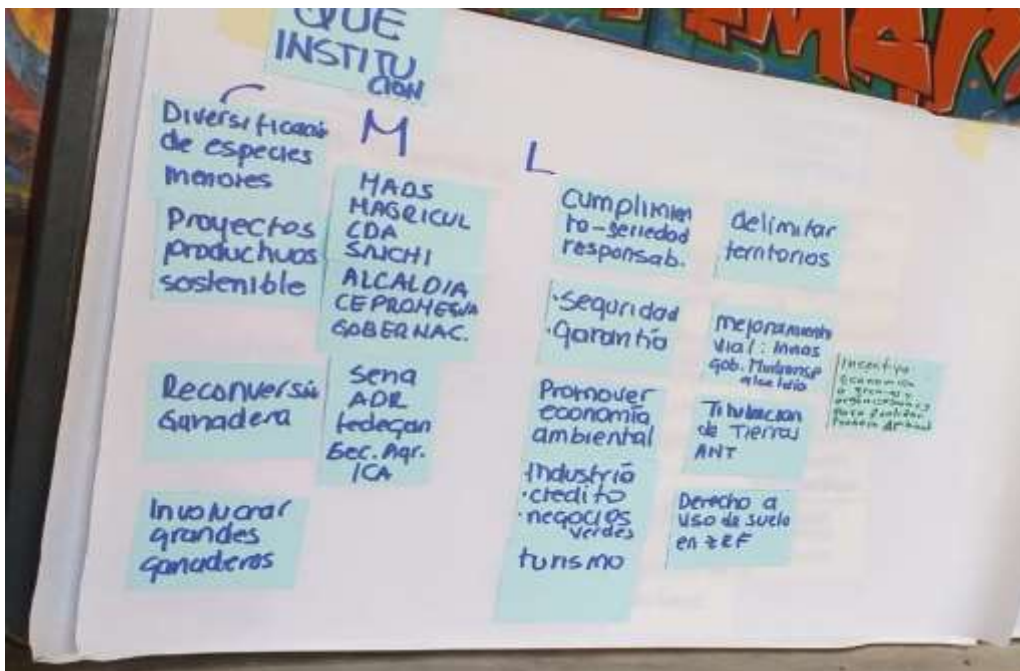 QUE
INSTITU
CION
Diversificació
de especies
menores
Proyectos
productivos
sostenible
Reconversió
Ganadera
Involucrar
grandes
ganaderos
M
MADS
MAGRICUL
CDA
SINCHI
ALCALDIA
CEPROMEGUA
GOBERNAC.
Sena
ADR
Fedegan
Sec. Agr.
ICA
L
Cumplimien
to-seriedad
responsab.
·Seguridad
·Garantía
Promover
economía
ambiental
·Industria
·credito
·negocios
verdes
turismo
delimitar
territorios
Mejoramiento
Vial: Invias
Gob. Mintransp
alcaldia
Titulacion
de Tierras
ANT
Derecho a
uso de suelo
en ZRF
Incentivo
economico
a
organizaciones
para